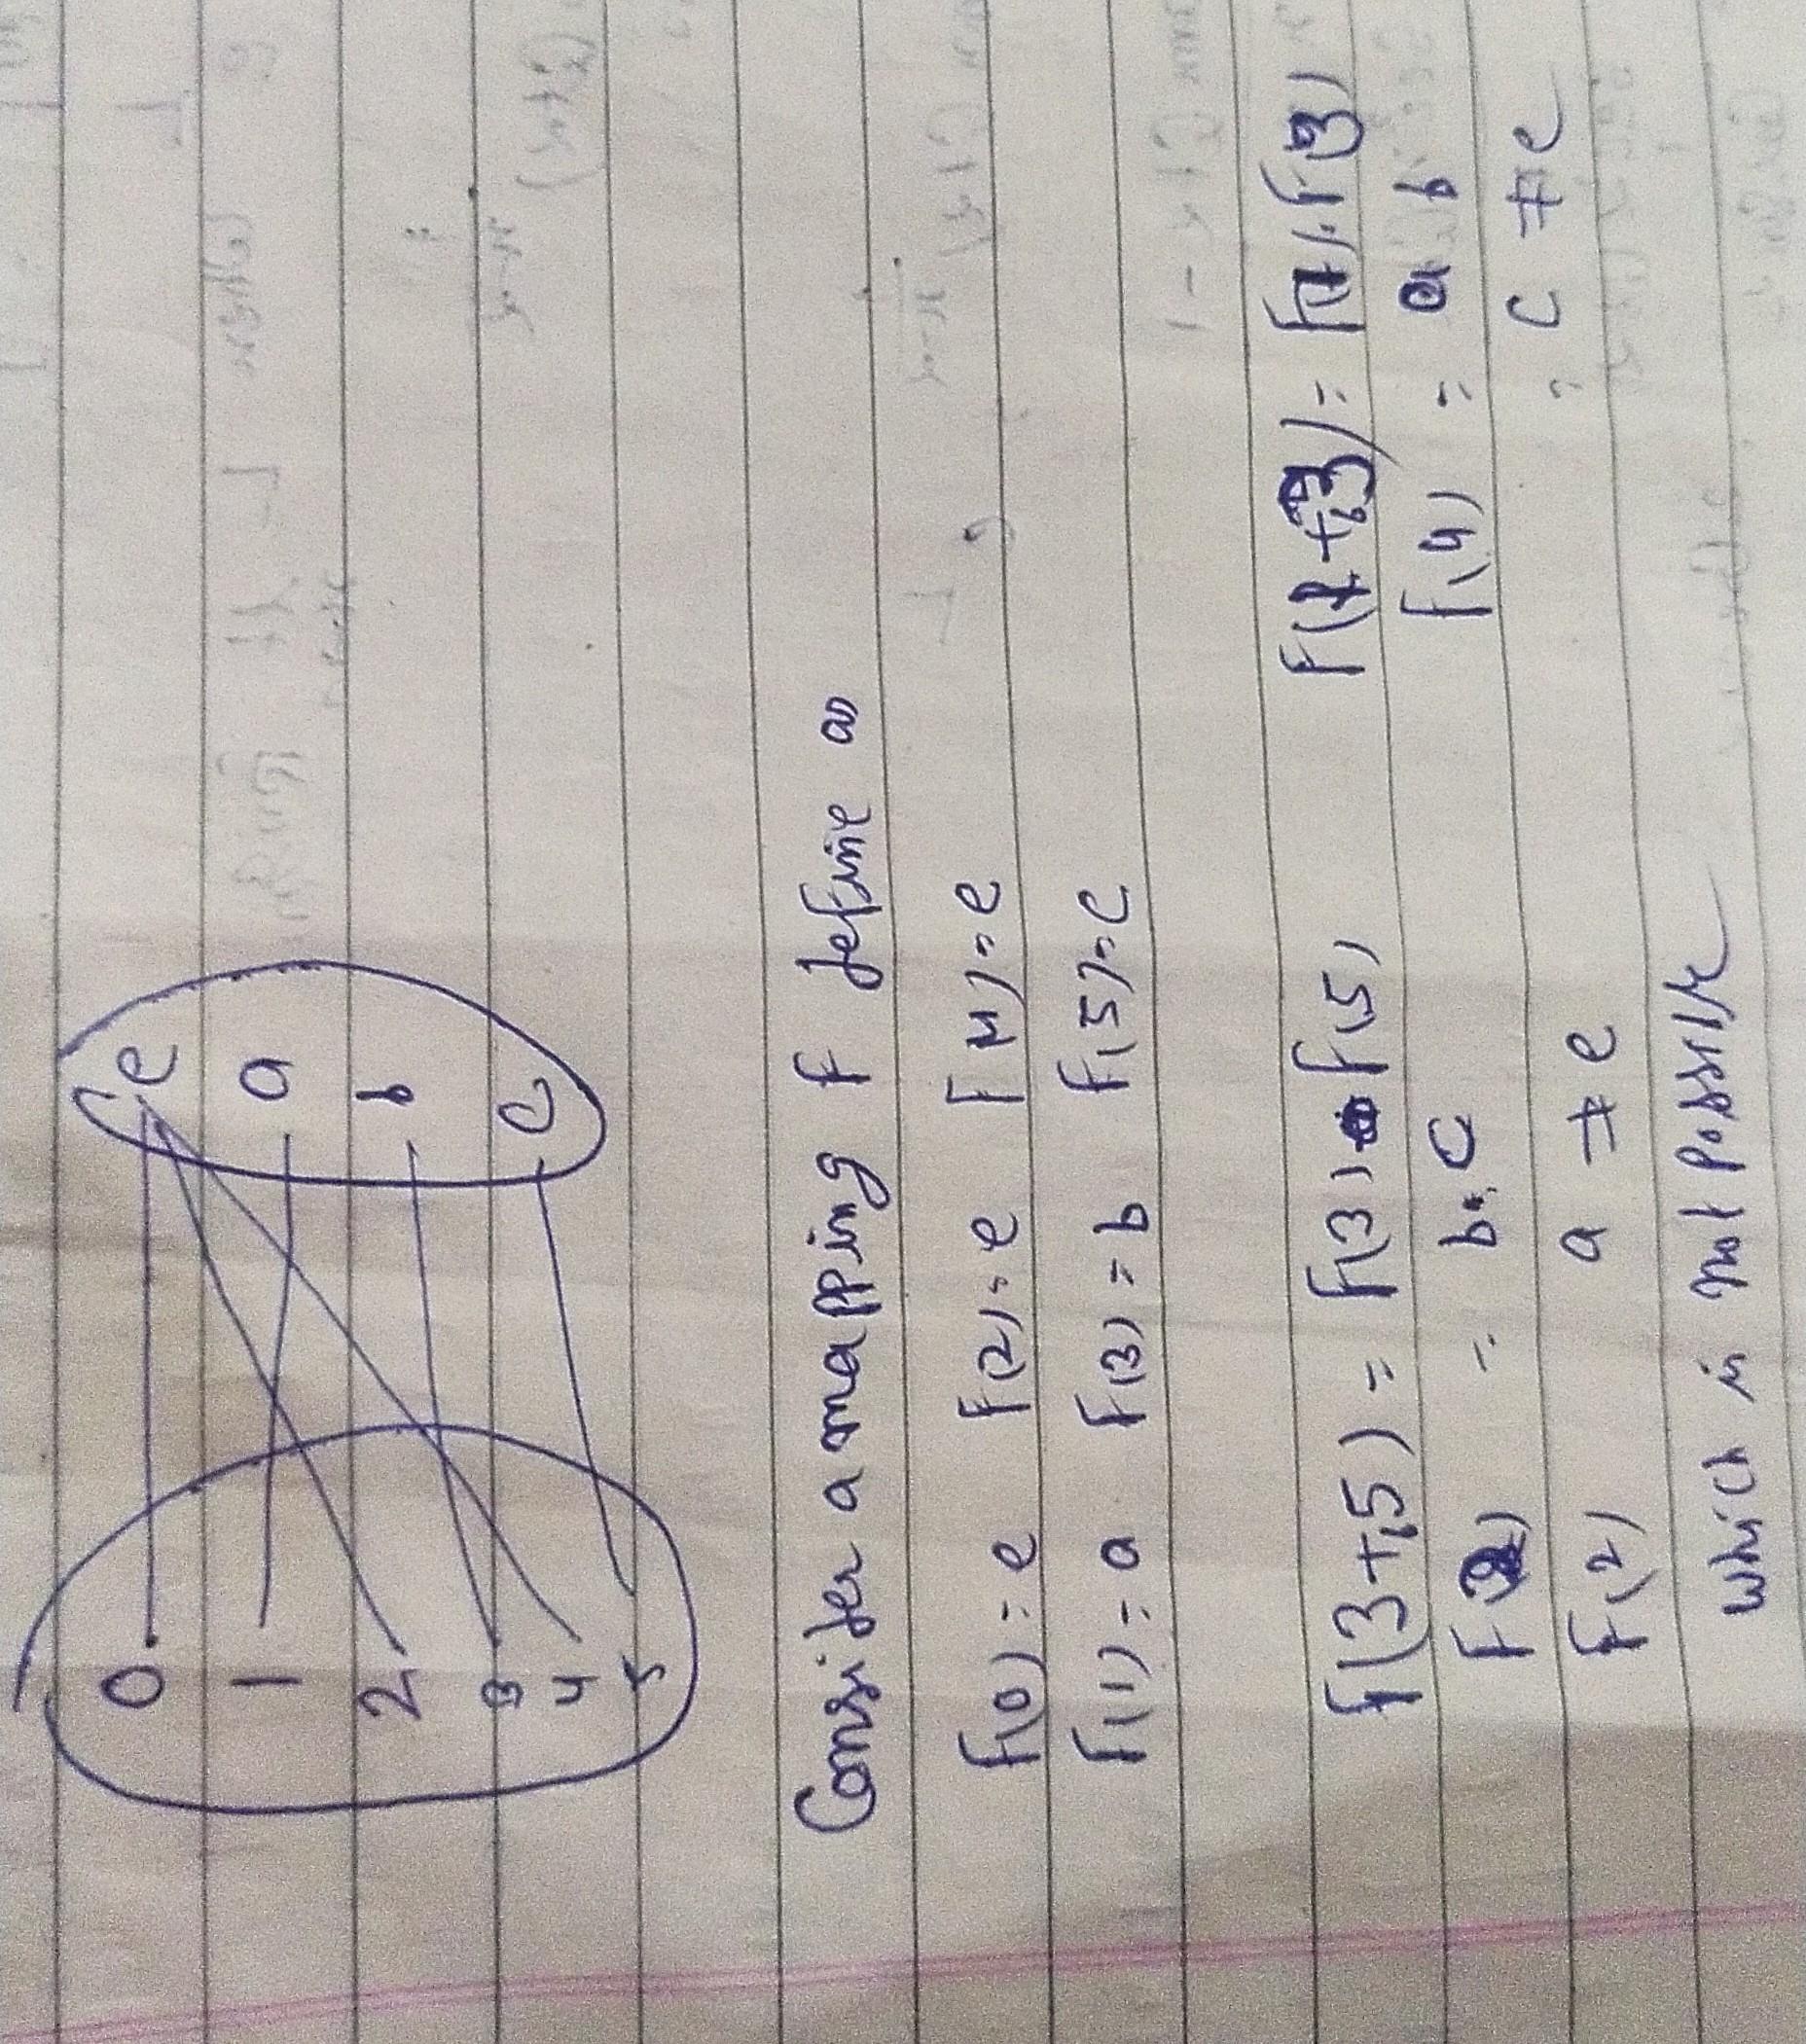 0 e
1 a
2 b
3 c
4
5
Consider a mapping f define as
f(0) = e f(2) = e f(4) = e
f(1) = a f(3) = b f(5) = c
f(3+₆5) = f(3) • f(5)
f(2) = b . c
f(2) a ≠ e
which is not possible
f(1+₆3) = f(1).f(3)
f(4) = a b
= c ≠ e